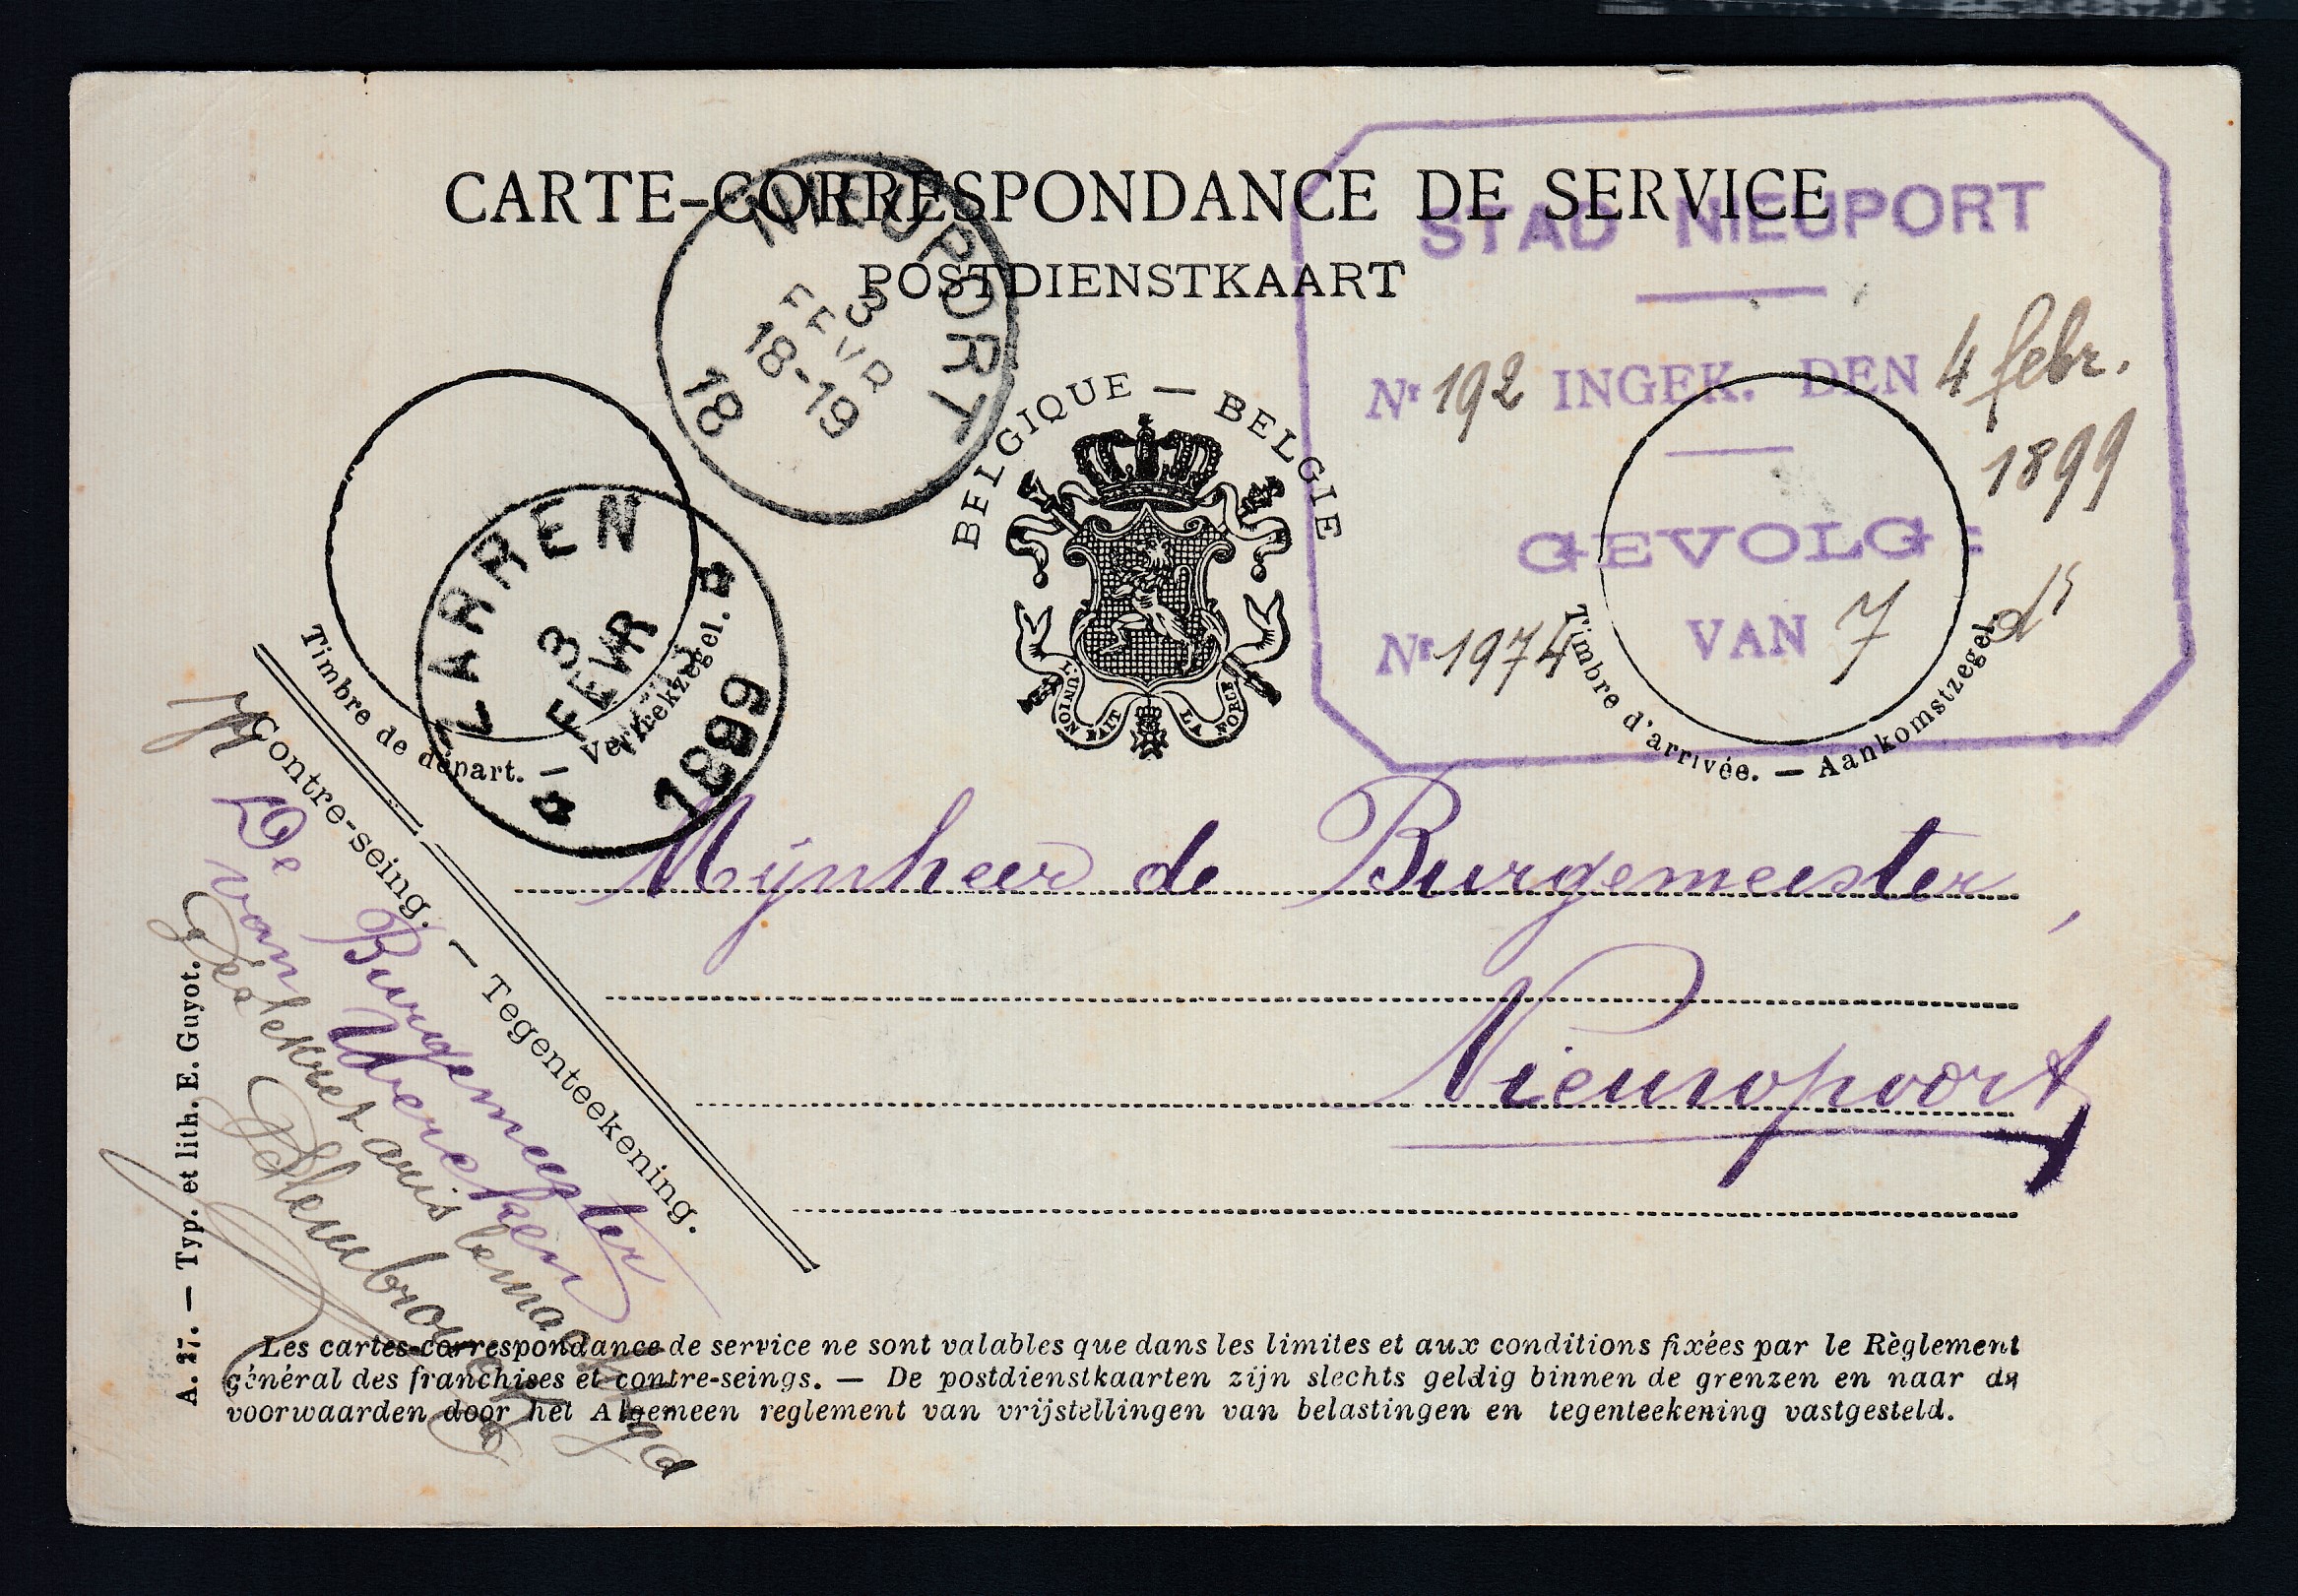 CARTE-CORRESPONDANCE DE SERVICE
POSTDIENSTKAART
NIEUPORT
3
FEVR
18-19
18
STAD NIEUPORT
Nr 192 INGEK. DEN 4 febr.
1899
GEVOLG:
Nr 1974 VAN 7 dr
BELGIQUE — BELGIE
L'UNION FAIT LA FORCE
ZARREN
3
FEVR
1899
Timbre de départ. — Vertrekzegel.
Timbre d'arrivée. — Aankomstzegel.
Contre-seing. — Tegenteekening.
De Burgemeester
van Wercken
Mijnheer de Burgemeester,
Nieuwpoort
A. 27. — Typ. et lith. E. Guyot.
Les cartes-correspondance de service ne sont valables que dans les limites et aux conditions fixées par le Règlement
général des franchises et contre-seings. — De postdienstkaarten zijn slechts geldig binnen de grenzen en naar de
voorwaarden door het Algemeen reglement van vrijstellingen van belastingen en tegenteekening vastgesteld.